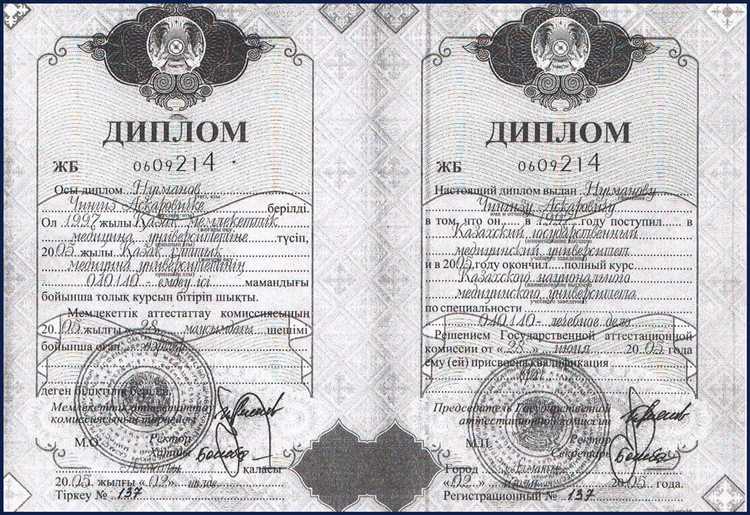 ДИПЛОМ
ЖБ 0609214
Осы диплом Нұрманов
Чингиз Аскаровичке берілді.
Ол 1997 жылы Қазақ мемлекеттік
медицина университетіне түсіп,
2005 жылы Қазақ ұлттық
медицина университетінің
040110 - емдеу ісі мамандығы
бойынша толық курсын бітіріп шықты.
Мемлекеттік аттестаттау комиссиясының
2005 жылғы « 28 » маусымдағы шешімі
бойынша оған дәрігер
деген біліктілік берілді.
Мемлекеттік аттестаттау
комиссиясының төрағасы
М.О. Ректор
Хатшы
Алматы қаласы
2005 жылғы « 02 » шілде
Тіркеу № 137
ДИПЛОМ
ЖБ 0609214
Настоящий диплом выдан Нурманову
Чингизу Аскаровичу
в том, что он в 1997 году поступил в
Казахский государственный
медицинский университет
и в 2005 году окончил полный курс
Казахского национального
медицинского университета
по специальности
040110 - лечебное дело
Решением Государственной аттестационной
комиссии от « 28 » июня 2005 года
ему (ей) присвоена квалификация
врач
Председатель Государственной
аттестационной комиссии
М.П. Ректор
Секретарь
Город Алматы
« 02 » июля 2005 года.
Регистрационный № 137